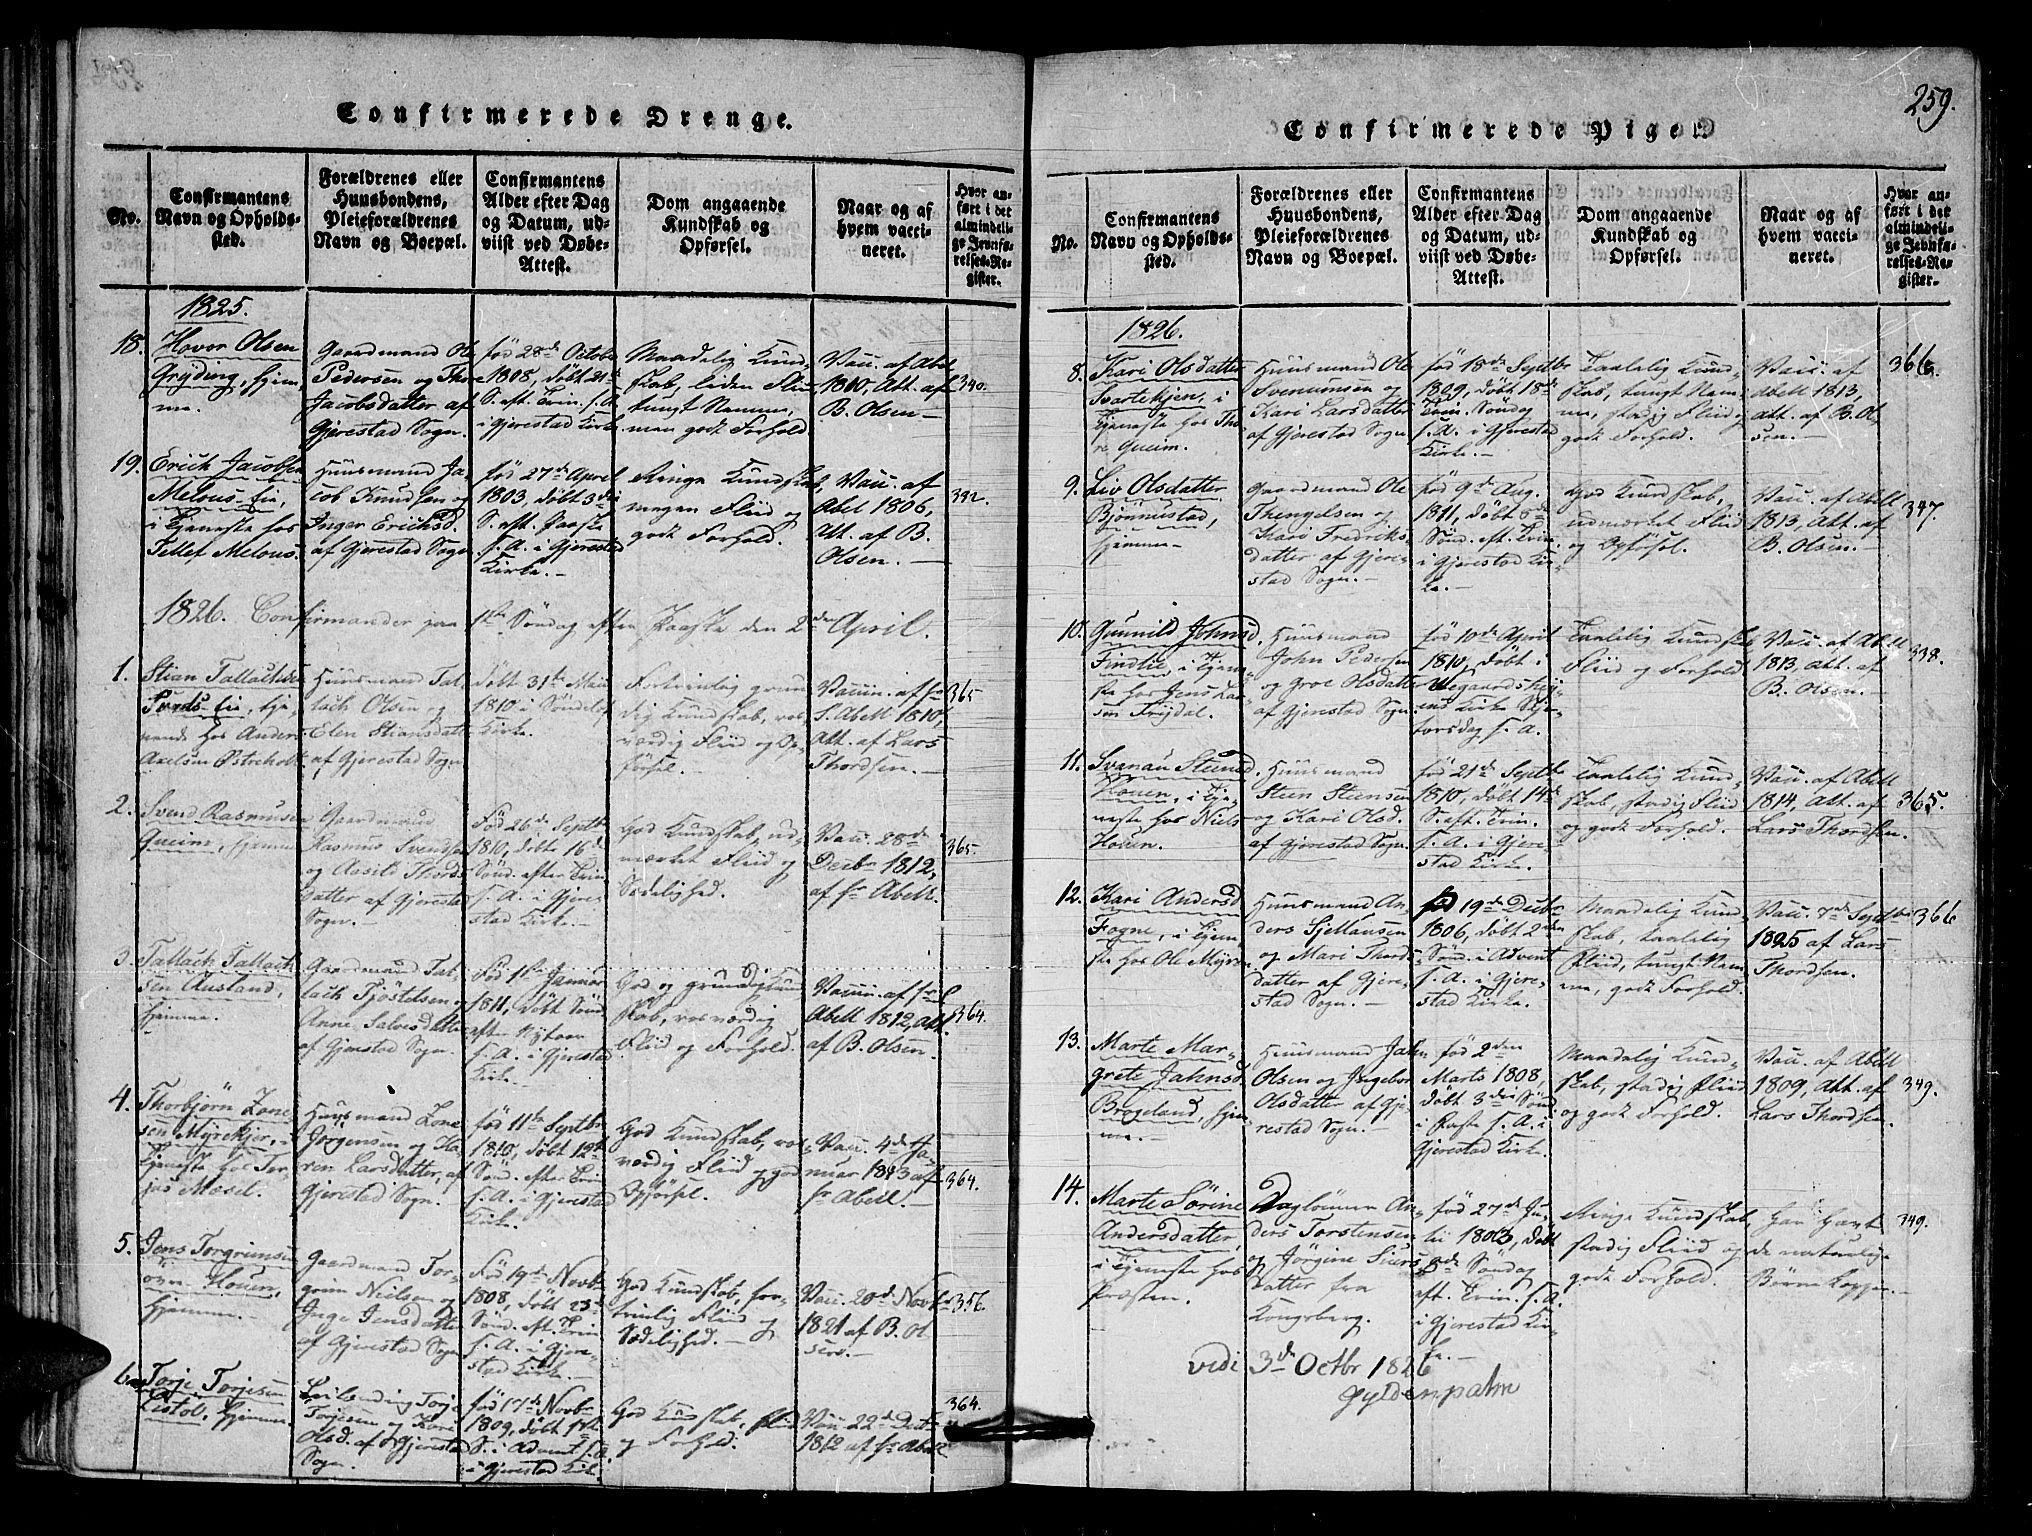 Confirmerede Drenge.
No.
Confirmantens
Navn og Opholds-
sted.
Forældrenes eller
Huusbondens,
Pleieforældrenes
Navn og Boepæl.
Confirmantens
Alder efter Dag
og Datum, ud-
viist ved Døbe-
Attest.
Dom angaaende
Kundskab og
Opførsel.
Naar og af
hvem vacci-
neret.
Hvor an-
ført i det
almindeli-
ge Jevnfø-
relses-Re-
gister.
1825.
18.
Hovor Olsen
Gryting, hjem-
me.
Gaardmand Ole
Pedersen og Thore
Jacobsdatter af
Gjerestad Sogn.
fød 28de Octobr
1808, døbt 21de
S. aft. Trin. s. A.
i Gjerestad Kirke
Maadelig Kund-
skab, liden Fliid
tungt Nemme,
men godt Forhold.
Vacc. af Abel
1810, Att. af
B. Olsen -
340.
19.
Erich Jacobsen
Melaas-Eie,
i Tjeneste hos
Tellef Melaas.
Huusmand Ja-
cob Knudsen og
Inger Erichsd.
af Gjerestad Sogn
fød 27de April
1803, døbt 3die
S. aft. Paaske
s. A. i Gjerestad
Kirke. -
Ringe Kundskab,
megen Fliid og
godt Forhold.
Vacc. af
Abel 1806,
Att. af B.
Olsen. -
332.
1826. Confirmander paa 1ste Søndag efter Paaske den 2den April.
1.
Stian Tallachsen
Sunds-Eie, tje-
nende hos Anders
Axelsen Østreholt
Huusmand Tal-
lach Olsen og
Elen Stiansdatter
af Gjerestad Sogn
døbt 31te Maii
1810 i Søndeløf
Kirke.
Fortrinlig grun-
dig Kundskab, ros-
værdig Fliid og Op-
førsel. -
Vaccin. af hr
S. Abell 1810,
Att. af Lars
Thordsen. -
365
2.
Svend Rasmusen
Qveim, hjemme
Gaardmand
Rasmus Svendsen
og Aasild Thords-
datter af Gjerestad
Sogn.
Fød 26de Septbr
1810, døbt 16de
Sønd. efter Trin
s. A. i Gjere-
stad Kirke. -
God Kundskab, ud-
mærket Fliid og
Sædelighed.
Vacc. 28de
Decbr 1812,
af hr Abell.
365.
3.
Tallach Tallach-
sen Austand,
hjemme.
Gaardmand Tal-
lach Tjøstelsen og
Anne Salvesdatter
af Gjerestad Sogn.
Fød 1ste Januar
1811, døbt Sønd.
efter Nytaar
s. A. i Gjerestad
Kirke.
God og grundig Kund-
skab, rosværdig
Fliid og Forhold.
Vaccin. af hr
Abell 1812, Att.
af B. Olsen.
364.
4.
Thorbjørn Lone-
sen Myrekjer, i
Tjeneste hos Tor-
jus Moset.
Huusmand Lone
Jørgensen og Ka-
ren Larsdatter, af
Gjerestad Sogn.
fød 11te Septbr
1810, døbt 19de
Sønd. efter Trin
s. A. i Gjerestad
Kirke.
God Kundskab, ros-
værdig Fliid og god
Opførsel.
Vacc. 4de Ja-
nuar 1813 af
hr Abell.
364.
5.
Jens Torgrimsen
øvre Houen,
hjemme.
Gaardmand Tor-
grim Nielsen og
Inge Jensdatter
af Gjerestad Sogn
Fød 19de Novbr
1808, døbt 23de
Sønd. aft. Trin
s. A. i Gjere-
stad Kirke.
God Kundskab, for-
trinlig Fliid og
Sædelighed. -
Vacc. 20de Novbr
1821 af B. Ol-
sen.
356.
6.
Torje Torjesen
Listøl, hjemme.
Leilending Torje
Torjesen og Tore
Olsd. af Gjerestad
Sogn.
fød 17de Novbr
1809, døbt 1ste
S. i Advent s. A.
i Gjerestad Kirke
God Kundskab, Fliid
og Forhold.
Vacc. 22de Decbr
1812 af hr Abell
364.
259.
Confirmerede Piger.
No.
Confirmantens
Navn og Opholds-
sted.
Forældrenes eller
Huusbondens,
Pleieforældrenes
Navn og Boepæl.
Confirmantens
Alder efter Dag
og Datum, ud-
viist ved Døbe-
Attest.
Dom angaaende
Kundskab og
Opførsel.
Naar og af
hvem vacci-
neret.
Hvor an-
ført i det
almindeli-
ge Jevnfø-
relses-Re-
gister.
1826.
8.
Kari Olsdatter
Svartekjen, i
Tjeneste hos Tho-
re Qveim.
Huusmand Ole
Svenumsen og
Kari Larsdatter
af Gjerestad Sogn
fød 18de Septbr
1809, døbt 18de
Trin. Søndag
s. A. i Gjerestad
Kirke -
Taalelig Kund-
skab, tungt Nem-
me, stadig Fliid og
godt Forhold.
Vacc. af
Abell 1813,
Att. af B. Ol-
sen. -
366.
9.
Liv Olsdatter
Bjønnestad,
hjemme -
Gaardmand Ole
Thengelsen og
Kari Fredriks-
datter af Gjere-
stad Sogn. -
fød 9de Aug.
1811, døbt 8de
Sønd. eft. Trin.
i Gjerestad Kir-
ke.
God Kundskab,
udmærket Fliid
og Opførsel.
Vacc. af Abell
1813, Att. af
B. Olsen. -
347.
10.
Gunnild Johnsd.
Findtie, i Tjene-
ste hos Jens Lar-
sen Trydal.
Huusmand
John Pedersen
og Groe Olsdatter
af Gjerestad Sogn
fød 10de April
1810, døbt i
Wegaardshej-
ens Kirke Skjer-
torsdag s. A.
Taalelig Kundskab
Fliid og Forhold
Vacc. af Abell
1813 Att. af
B. Olsen. -
338.
11.
Svanau Steensd.
Houen, i Tje-
neste hos Niels
Houen.
Huusmand
Steen Steensen
og Kari Olsd.
af Gjerestad Sogn.
fød 21de Septbr
1810, døbt 14de
S. aft. Trin.
s. A. i Gjere-
stad Kirke
Taalelig Kund-
skab, stadig Fliid
og godt Forhold.
Vacc. af Abell
1814, Att. af
Lars Thordsen.
365.
12.
Kari Andersd
Fogne, i Tjene-
ste hos Ole Myren
Huusmand An-
ders Sjellausen
og Mari Thords-
datter af Gjere-
stad Sogn. -
fød 19de Decbr
1806, døbt 2den
Sønd. i Advent
s. A. i Gjere-
stad Kirke.
Maadelig Kund-
skab, taalelig
Fliid, tungt Nem-
me, godt Forhold.
Vacc. 7de Septbr
1825 af Lars
Thordsen.
366
13.
Marte Mar-
grete Jahnsd.
Brogeland, hjem-
me. -
Huusmand Jahn
Olsen og Ingebor
Olsdatter af Gje-
restad Sogn.
fød 2den
Marts 1808,
døbt 3die Sønd
i Faste s. A. i
Gjerestad Kirke.
Maadelig Kund-
skab, stadig Fliid
og godt Forhold.
Vacc. af Abell
1809, Att. af
Lars Thordsen.
349.
14.
Marte Sørine
Andersdatter,
i Tjeneste hos
Præsten.
Daglønner An-
ders Torstensen
og Jørgine Siurs-
datter fra
Kongsberg.
fød 27de Ju-
lii 1803, døbt
8de Søndag
aft. Trin. s. A.
i Gjerestad Kir-
ke. -
Ringe Kundskab,
stadig Fliid og
godt Forhold.
Har havt
de naturlige
Børnekopper. -
349.
Vidi 3de Octbr 1826
Gyldenpalm